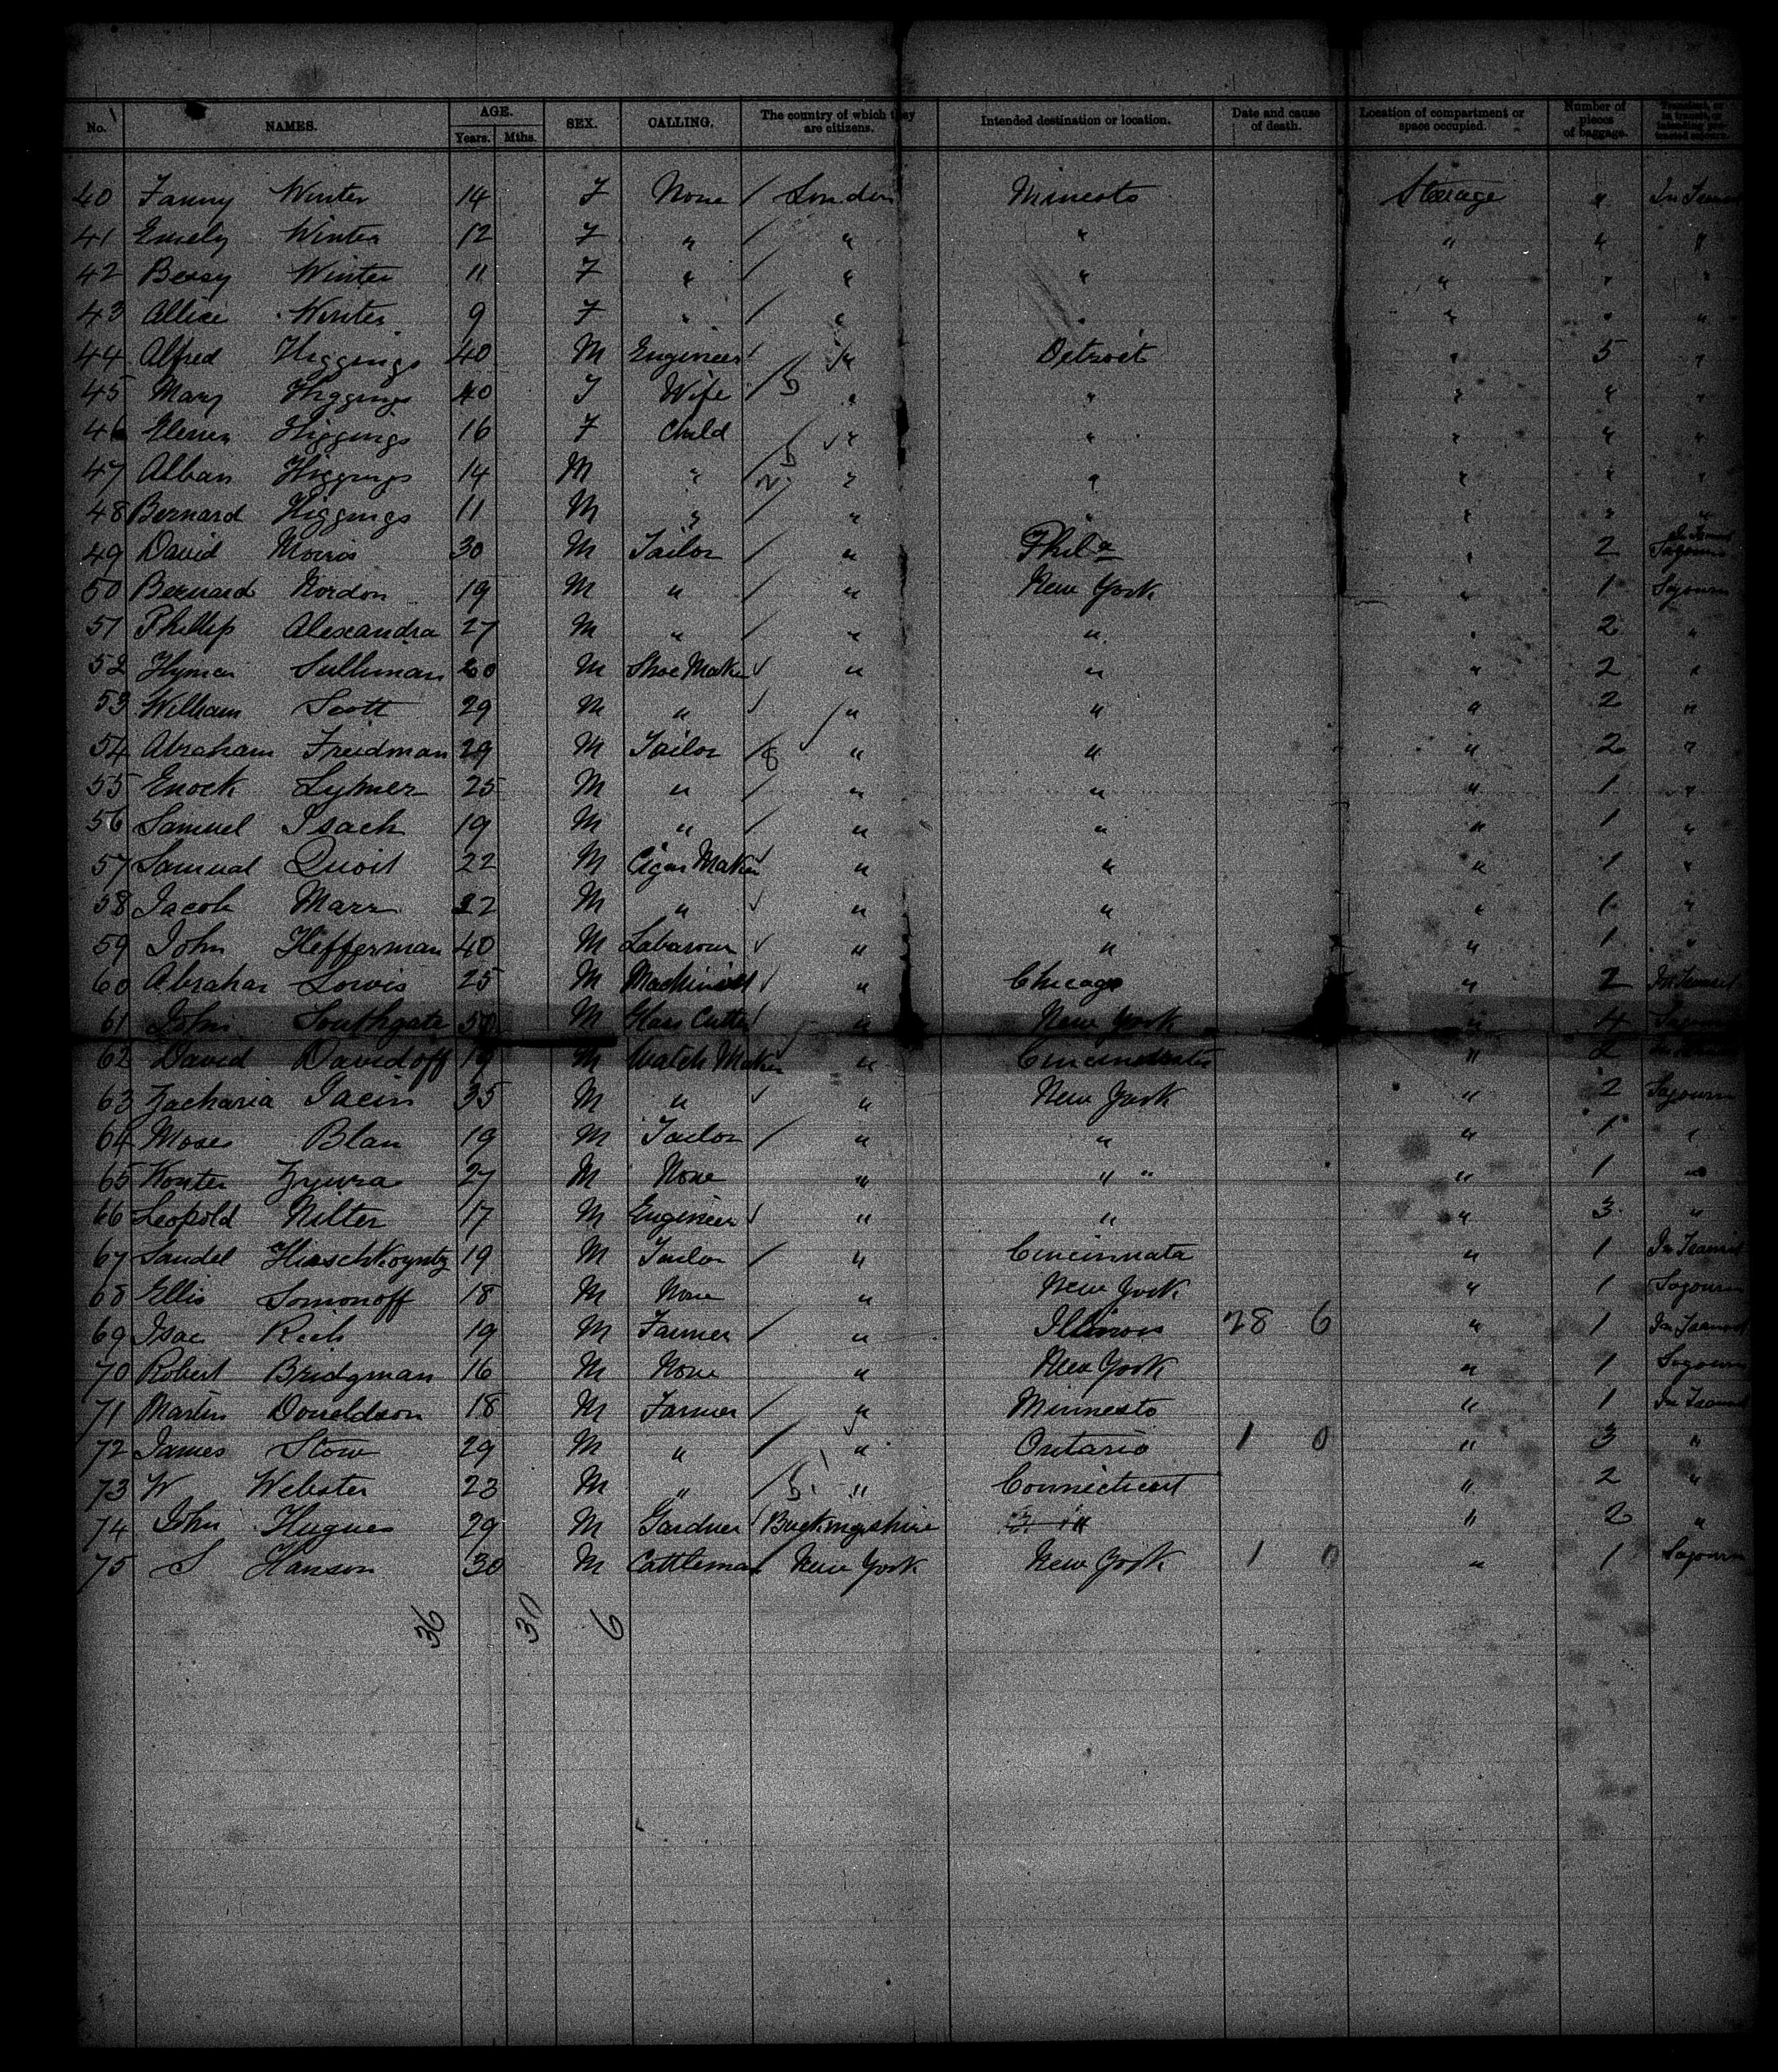 No. NAMES. AGE. Years. Mths. SEX. CALLING. The country of which they are citizens. Intended destination or location. Date and cause of death. Location of compartment or space occupied. Number of pieces of baggage.
40 Fanny Winter 14 F None / London Minesota Steerage " In Transit
41 Emely Winter 12 F " / " " " " "
42 Bessy Winter 11 F " / " " " " "
43 Allice Winter 9 F " / " " " " "
44 Alfred Higgings 40 M Engineer " Detroit " 5 "
45 Mary Higgings 40 F Wife / " " " " "
46 Higgings 16 F Child " " " " "
47 Alban Higgings 14 M " / " " " " "
48 Bernard Higgings 11 M " / " " " " "
49 David Morris 30 M Tailor / " Phila " 2 In Transit
50 Bernard Nordon 19 M " / " New York " 1 Sojourn
51 Phillip Alexandra 27 M " / " " " 2 "
52 Hyman Sulliman 20 M Shoe Maker " " " 2 "
53 William Scott 29 M " " " " 2 "
54 Abraham Freidman 29 M Tailor / 8 " " " 2 "
55 Enock Lymer 25 M " / " " " 1 "
56 Samuel Isach 19 M " / " " " 1 "
57 Samual Quoit 22 M Cigar Maker " " " 1 "
58 Jacob Marx 22 M " " " " 1 "
59 John Hefferman 40 M Labarour " " " 1 "
60 Abraham Lowis 25 M Machinist " Chicago " 2 In Transit
61 John Southgate 50 M Glass Cutter " New York " 4 Sojourn
62 David Davidoff 19 M Watch Maker " Cincinnata " 2 In Transit
63 Zacharia 35 M " " New York " 2 Sojourn
64 Moses Blau 19 M Tailor / " " " 1 "
65 Wonter 27 M None " " " " 1 "
66 Leopold Nilter 17 M Engineer " " " 3 "
67 Sandel 19 M Tailor / " Cincinnata " 1 In Transit
68 Ellis Somonoff 18 M None " New York " 1 Sojourn
69 Isac Reib 19 M Farmer / " Illinois 28 6 " 1 In Transit
70 Robert Bridgman 16 M None " New York " 1 Sojourn
71 Martin Doneldson 18 M Farmer / " Minnesto " 1 In Transit
72 James Stow 29 M " / " Ontario 1 0 " 3 "
73 W Webster 23 M " / " Connecticut " 2 "
74 John Hugues 29 M Gardner Buckingshire " 2 "
75 S Hanson 30 M Cattleman New York New York 1 0 " 1 Sojourn
36 30 6